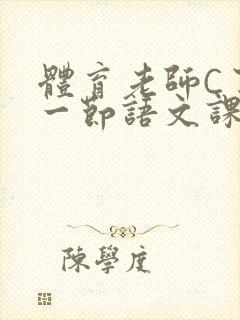 體育老師C
一節語文課
陳學度